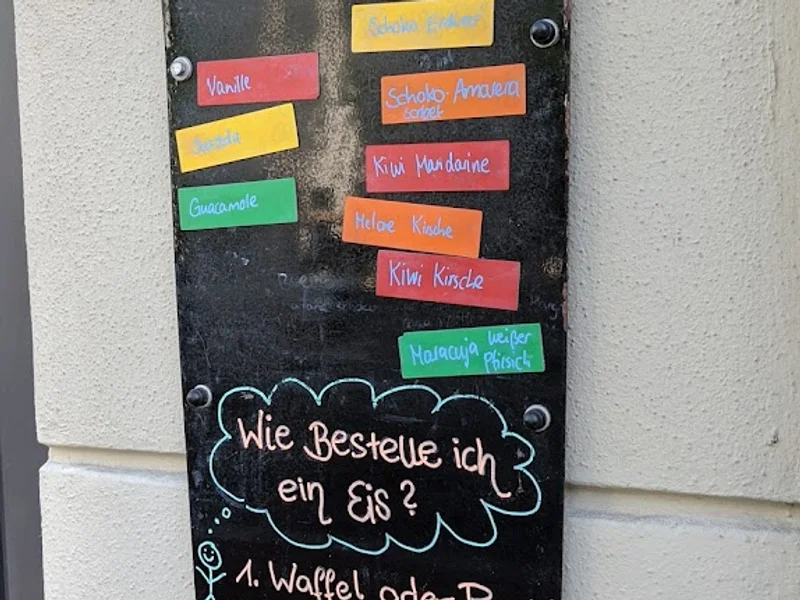 Schoko
Vanille
Schoko-Amarena
Sorbet
Kiwi Mandarine
Guacamole
Melone Kirsche
Kiwi Kirsche
Maracuja weißer
Pfirsich
Wie Bestelle ich
ein Eis?
1. Waffel oder